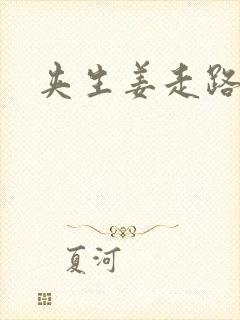 夹生姜走路
夏河